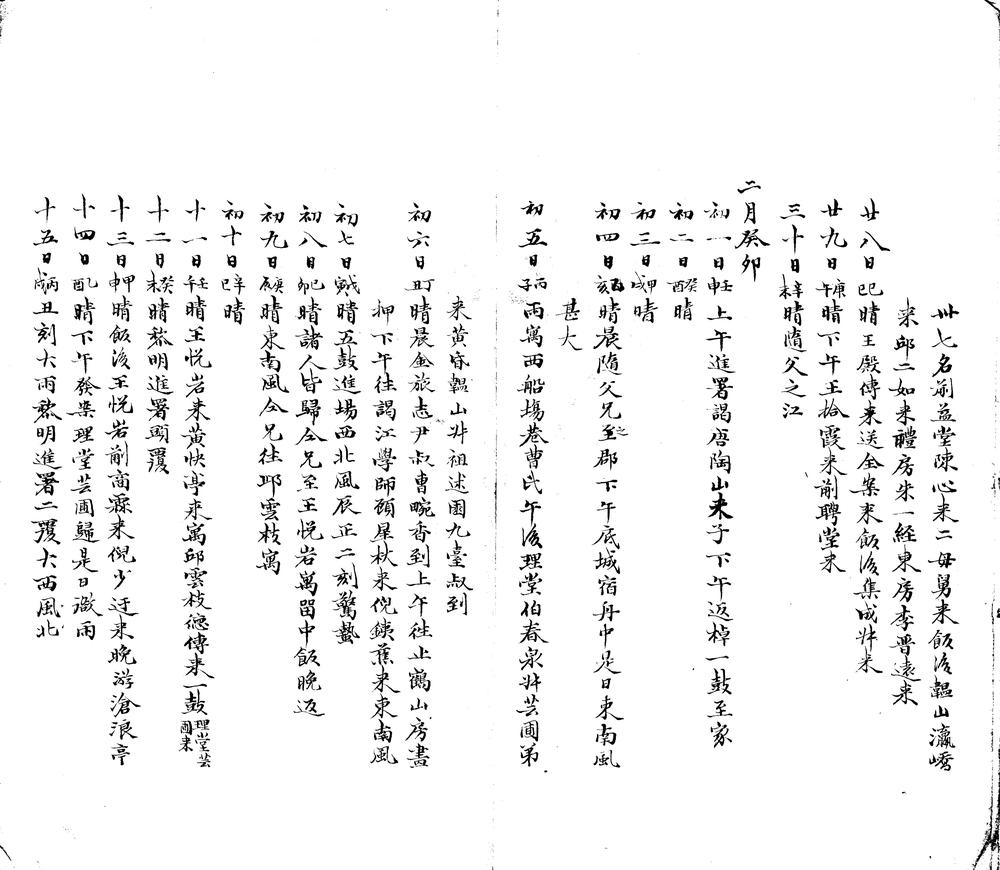 卅七名前益堂陳心来二母舅来飯後韞山瀛嶠
来邱二如来禮房朱一経東房李晋遠来
廿八日己巳晴王殿傳来送全案来飯後集成廾来
廿九日庚午晴下午王拾霞来前聘堂来
三十日辛未晴隨父之江
二月癸卯
初一日壬申上午進署謁唐陶山夫子下午返棹一鼓至家
初二日癸酉晴
初三日甲戌晴
初四日乙亥晴晨隨父兄至郡下午底城宿舟中是日東南風
甚大
初五日丙子雨寓西船塲巷曹氏午後理堂伯春泉廾芸圃弟
来黄昏韞山廾祖述園九臺叔到
初六日丁丑晴晨金旅志尹叔曹畹香到上午往止鶴山房畫
押下午往謁江學師顧星秋来倪鐵蕉来東南風
初七日戊寅晴五鼓進場西北風辰正二刻驚蟄
初八日己卯晴諸人皆歸仝兄至王悦岩寓留中飯晚返
初九日庚辰晴東南風仝兄往邱雲枝寓
初十日辛巳晴
十一日壬午晴王悦岩来黄快亭来寓邱雲枝德傳来一鼓理堂芸圃来
十二日癸未晴黎明進署頭覆
十三日甲申晴飯後王悦岩前商霖来倪少迂来晚游滄浪亭
十四日乙酉晴下午發案理堂芸圃歸是日微雨
十五日丙戌丑刻大雨黎明進署二覆大西風北